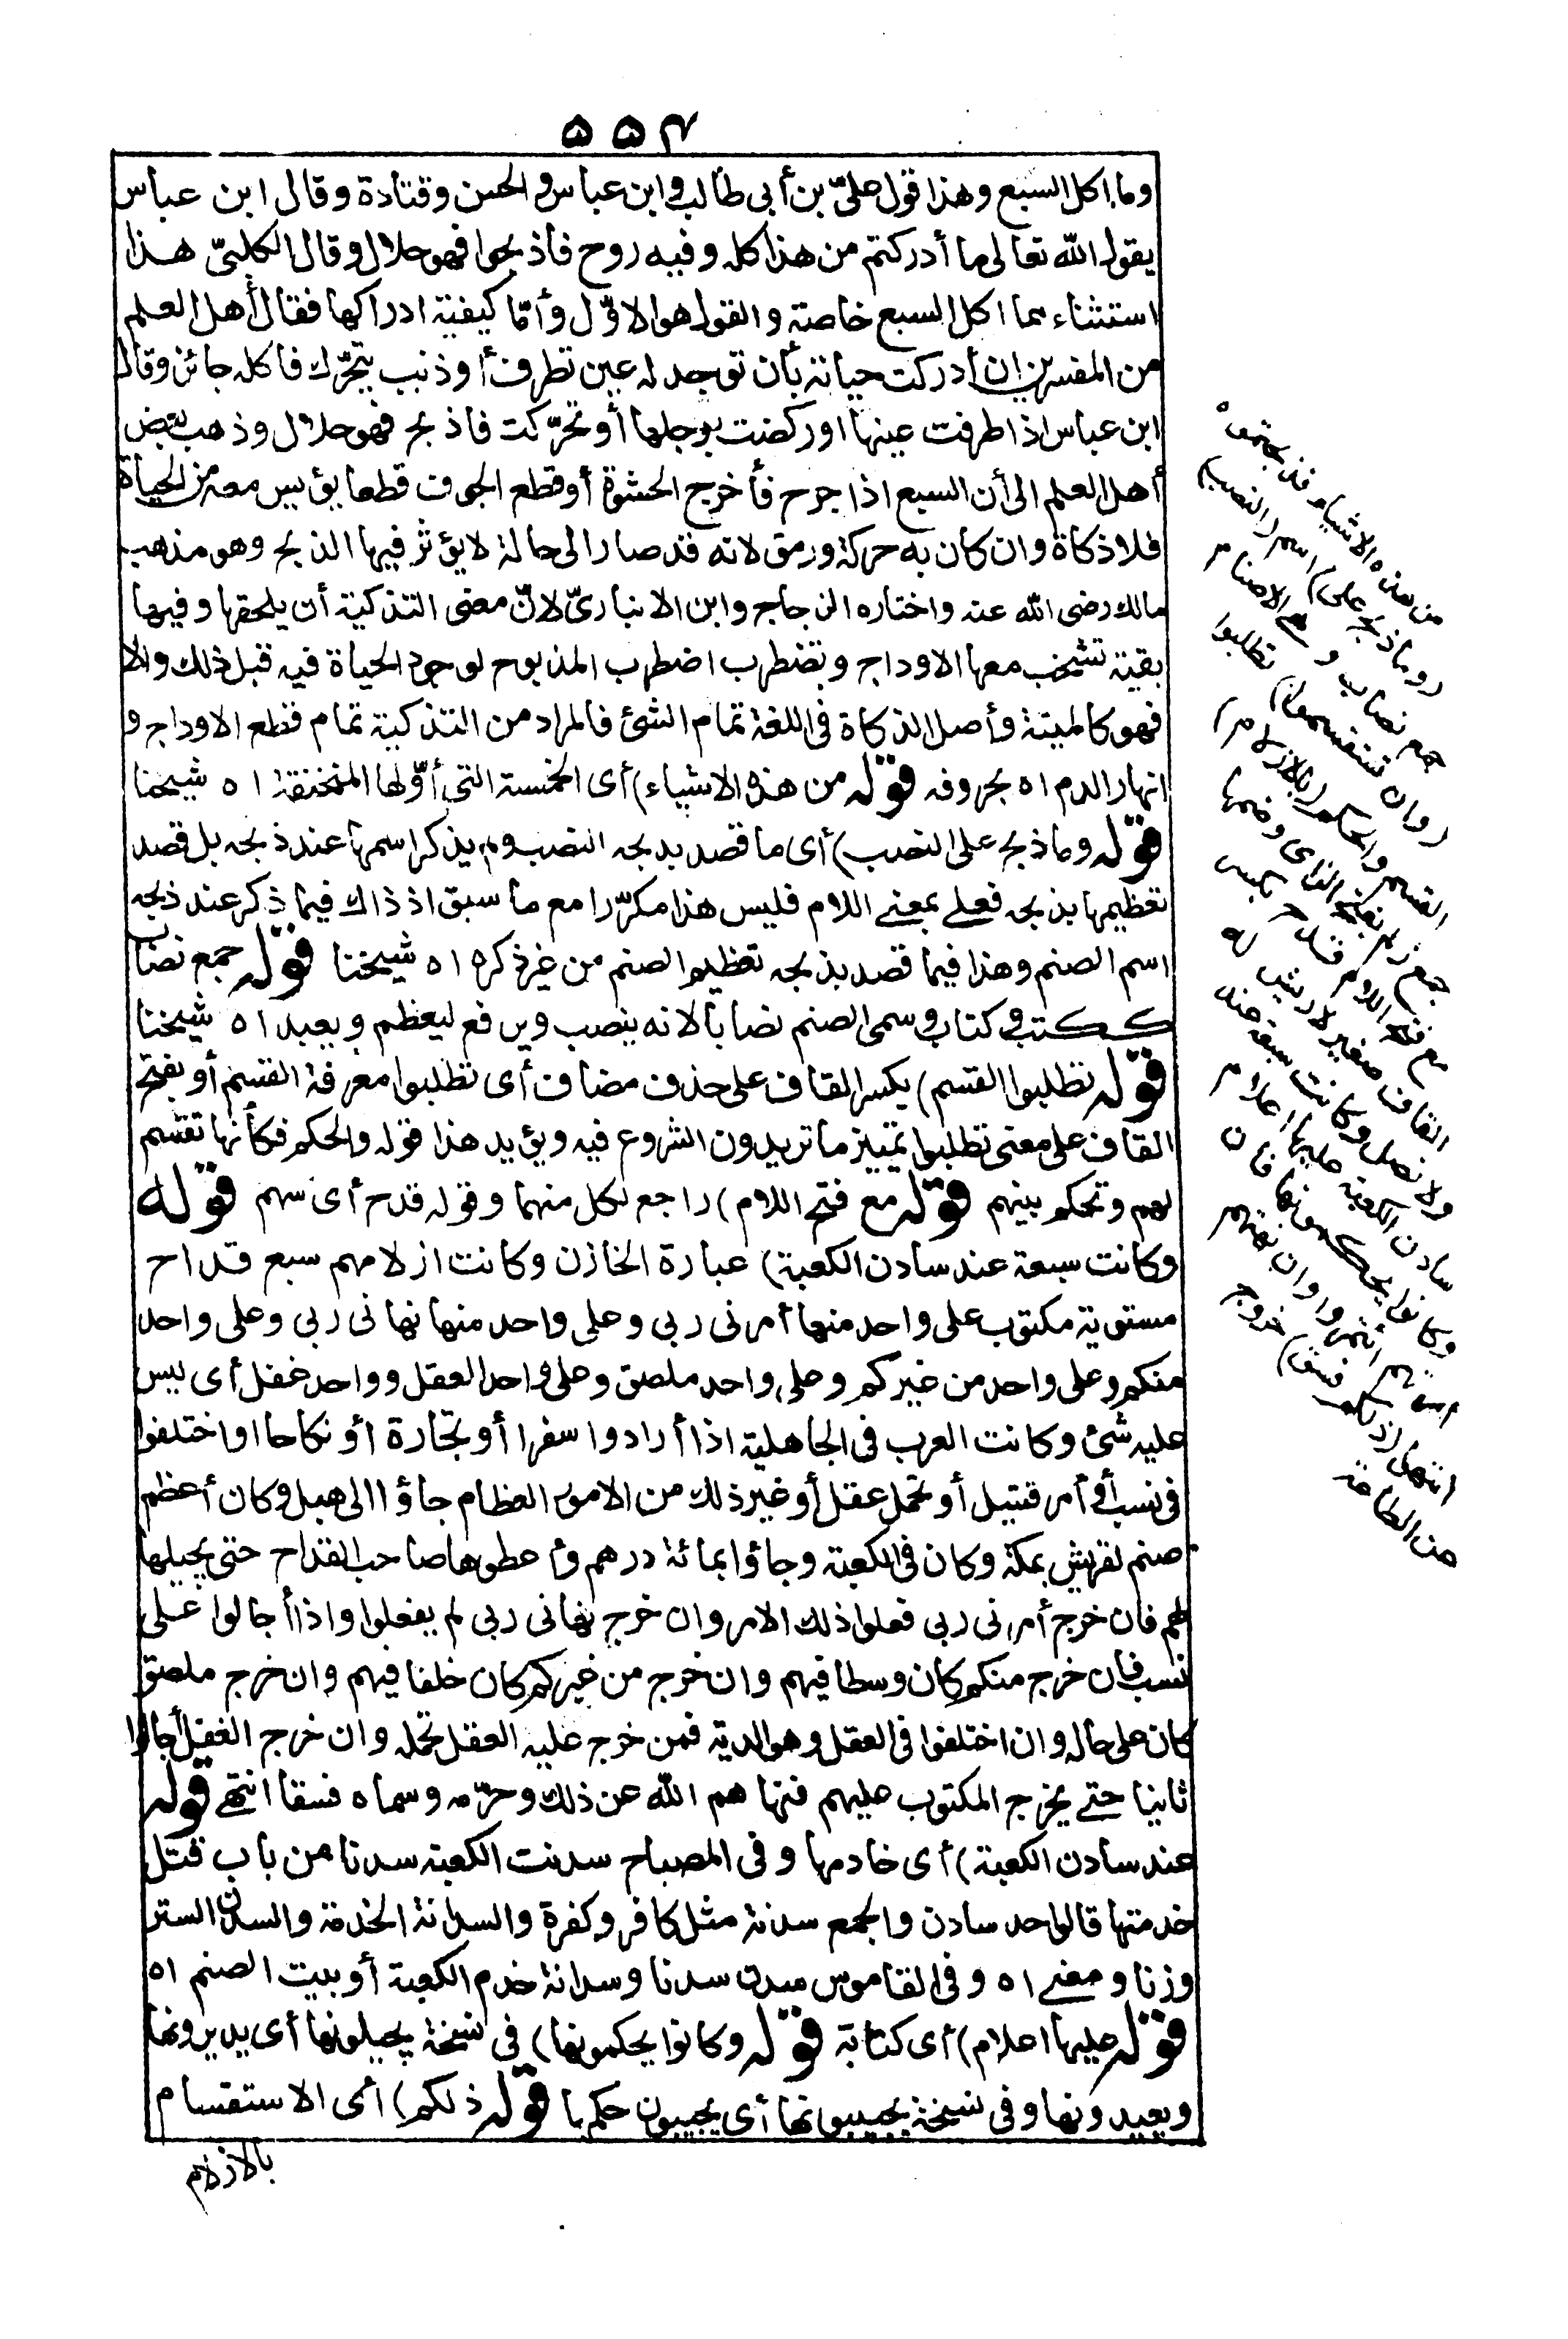 ٥٥٤
وما اكل السبع وهذا قول علىّ بن أبى طالب وابن عباس والحسن وقتادة وقال ابن عباس
يقول الله تعالى ما أدركتم من هذا كله وفيه روح فاذبحوا فهو حلال وقال الكلبىّ هذا
استثناء مما اكل السبع خاصة والقول هو الاوّل وأمّا كيفية ادراكها فقال أهل العلم
من المفسرين ان أدركت حياته بأن توجد له عين تطرف أو ذنب يتحرّك فاكله جائز وقال
ابن عباس اذا طرفت عينها او ركضت برجلها أو تحرّكت فاذبح فهو حلال وذهب بعض
أهل العلم الى أن السبع اذا جرح فأخرج الحشوة أو قطع الجوف قطعا يؤيس معه من الحياة
فلا ذكاة وان كان به حركة ورمق لانه قد صار الى حالة لا يؤثر فيها الذبح وهو مذهب
مالك رضى الله عنه واختاره الزجاج وابن الانبارىّ لانّ معنى التذكية أن يلحقها وفيها
بقية تشخب معها الاوداج وتضطرب اضطرب المذبوح لوجود الحياة فيه قبل ذلك والا
فهو كالميتة وأصل الذكاة فى اللغة تمام الشئ فالمراد من التذكية تمام قطع الاوداج و
انهار الدم اه بحروفه قوله من هذه الاشياء) أى الخمسة التى أوّلها المنخنقة اه شيخنا
قوله وما ذبح على النصب) أى ما قصد بذبحه النصب ولم يذكر اسمها عند ذبحه بل قصد
تعظيمها بذبحه فعلى بمعنى اللام فليس هذا مكرّرا مع ما سبق اذ ذاك فيما ذكر عند ذبحه
اسم الصنم وهذا فيما قصد بذبحه تعظيم الصنم من غير ذكره اه شيخنا قوله جمع نصاب
ككتب وكتاب وسمى الصنم نصابا لانه ينصب ويرفع ليعظم ويعبد اه شيخنا
قوله تطلبوا القسم) بكسر القاف على حذف مضاف أى تطلبوا معرفة القسم أو بفتح
القاف على معنى تطلبوا تمييز ما تريدون الشروع فيه ويؤيد هذا قوله والحكم فكأنها تقسم
لهم وتحكم بينهم قوله مع فتح اللام) راجع لكل منهما وقوله قدح أى سهم قوله
وكانت سبعة عند سادن الكعبة) عبارة الخازن وكانت ازلامهم سبع قداح
مستوية مكتوب على واحد منها أمرنى ربى وعلى واحد منها نهانى ربى وعلى واحد
منكم وعلى واحد من غيركم وعلى واحد ملصق وعلى واحد العقل وواحد غفل أى ليس
عليه شئ وكانت العرب فى الجاهلية اذا أرادوا سفرا أو تجارة أو نكاحا او اختلفوا
فى نسب أو أمر قتيل أو تحمل عقل أو غير ذلك من الامور العظام جاؤا الى هبل وكان أعظم
صنم لقريش بمكة وكان فى الكعبة وجاؤا بمائة درهم وأعطوها صاحب القداح حتى يجيلها
لهم فان خرج أمرنى ربى فعلوا ذلك الامر وان خرج نهانى ربى لم يفعلوا واذا أجالوا على
نسب فان خرج منكم كان وسطا فيهم وان خرج من غيركم كان حلفا فيهم وان خرج ملصق
كان على حاله وان اختلفوا فى العقل وهو الدية فمن خرج عليه العقل تحمله وان خرج الغفل أجالوا
ثانيا حتى يخرج المكتوب عليهم فنهاهم الله عن ذلك وحرّمه وسماه فسقا انتهى قوله
عند سادن الكعبة) أى خادمها وفى المصباح سدنت الكعبة سدنا من باب قتل
خدمتها فالواحد سادن والجمع سدنة مثل كافر وكفرة والسدانة الخدمة والسدن الستر
وزنا ومعنى اه وفى القاموس سدن سدنا وسدانة خدم الكعبة أو بيت الصنم اه
قوله عليها اعلام) أى كتابة قوله وكانوا يحكمونها) فى نسخة يجيلونها أى يديرونها
ويعيدونها وفى نسخة يجيبونها أى يجيبون حكمها قوله ذلكم) أى الاستقسام
بالازلام
من هذه الاشياء فذبحتموه
(وما ذبح على) اسم (النصب)
جمع نصاب وهى الاصنام
(وان تستقسموا) تطلبوا
القسم والحكم (بالازلام)
جمع زلم بفتح الزاى وضمها
مع فتح اللام قدح بكسر
القاف صغير لا ريش له
ولا نصل وكانت سبعة عند
سادن الكعبة عليها اعلام
وكانوا يحكمونها فان
امرتهم ائتمروا وان نهتهم
انتهوا (ذلكم فسق) خروج
عن الطاعة